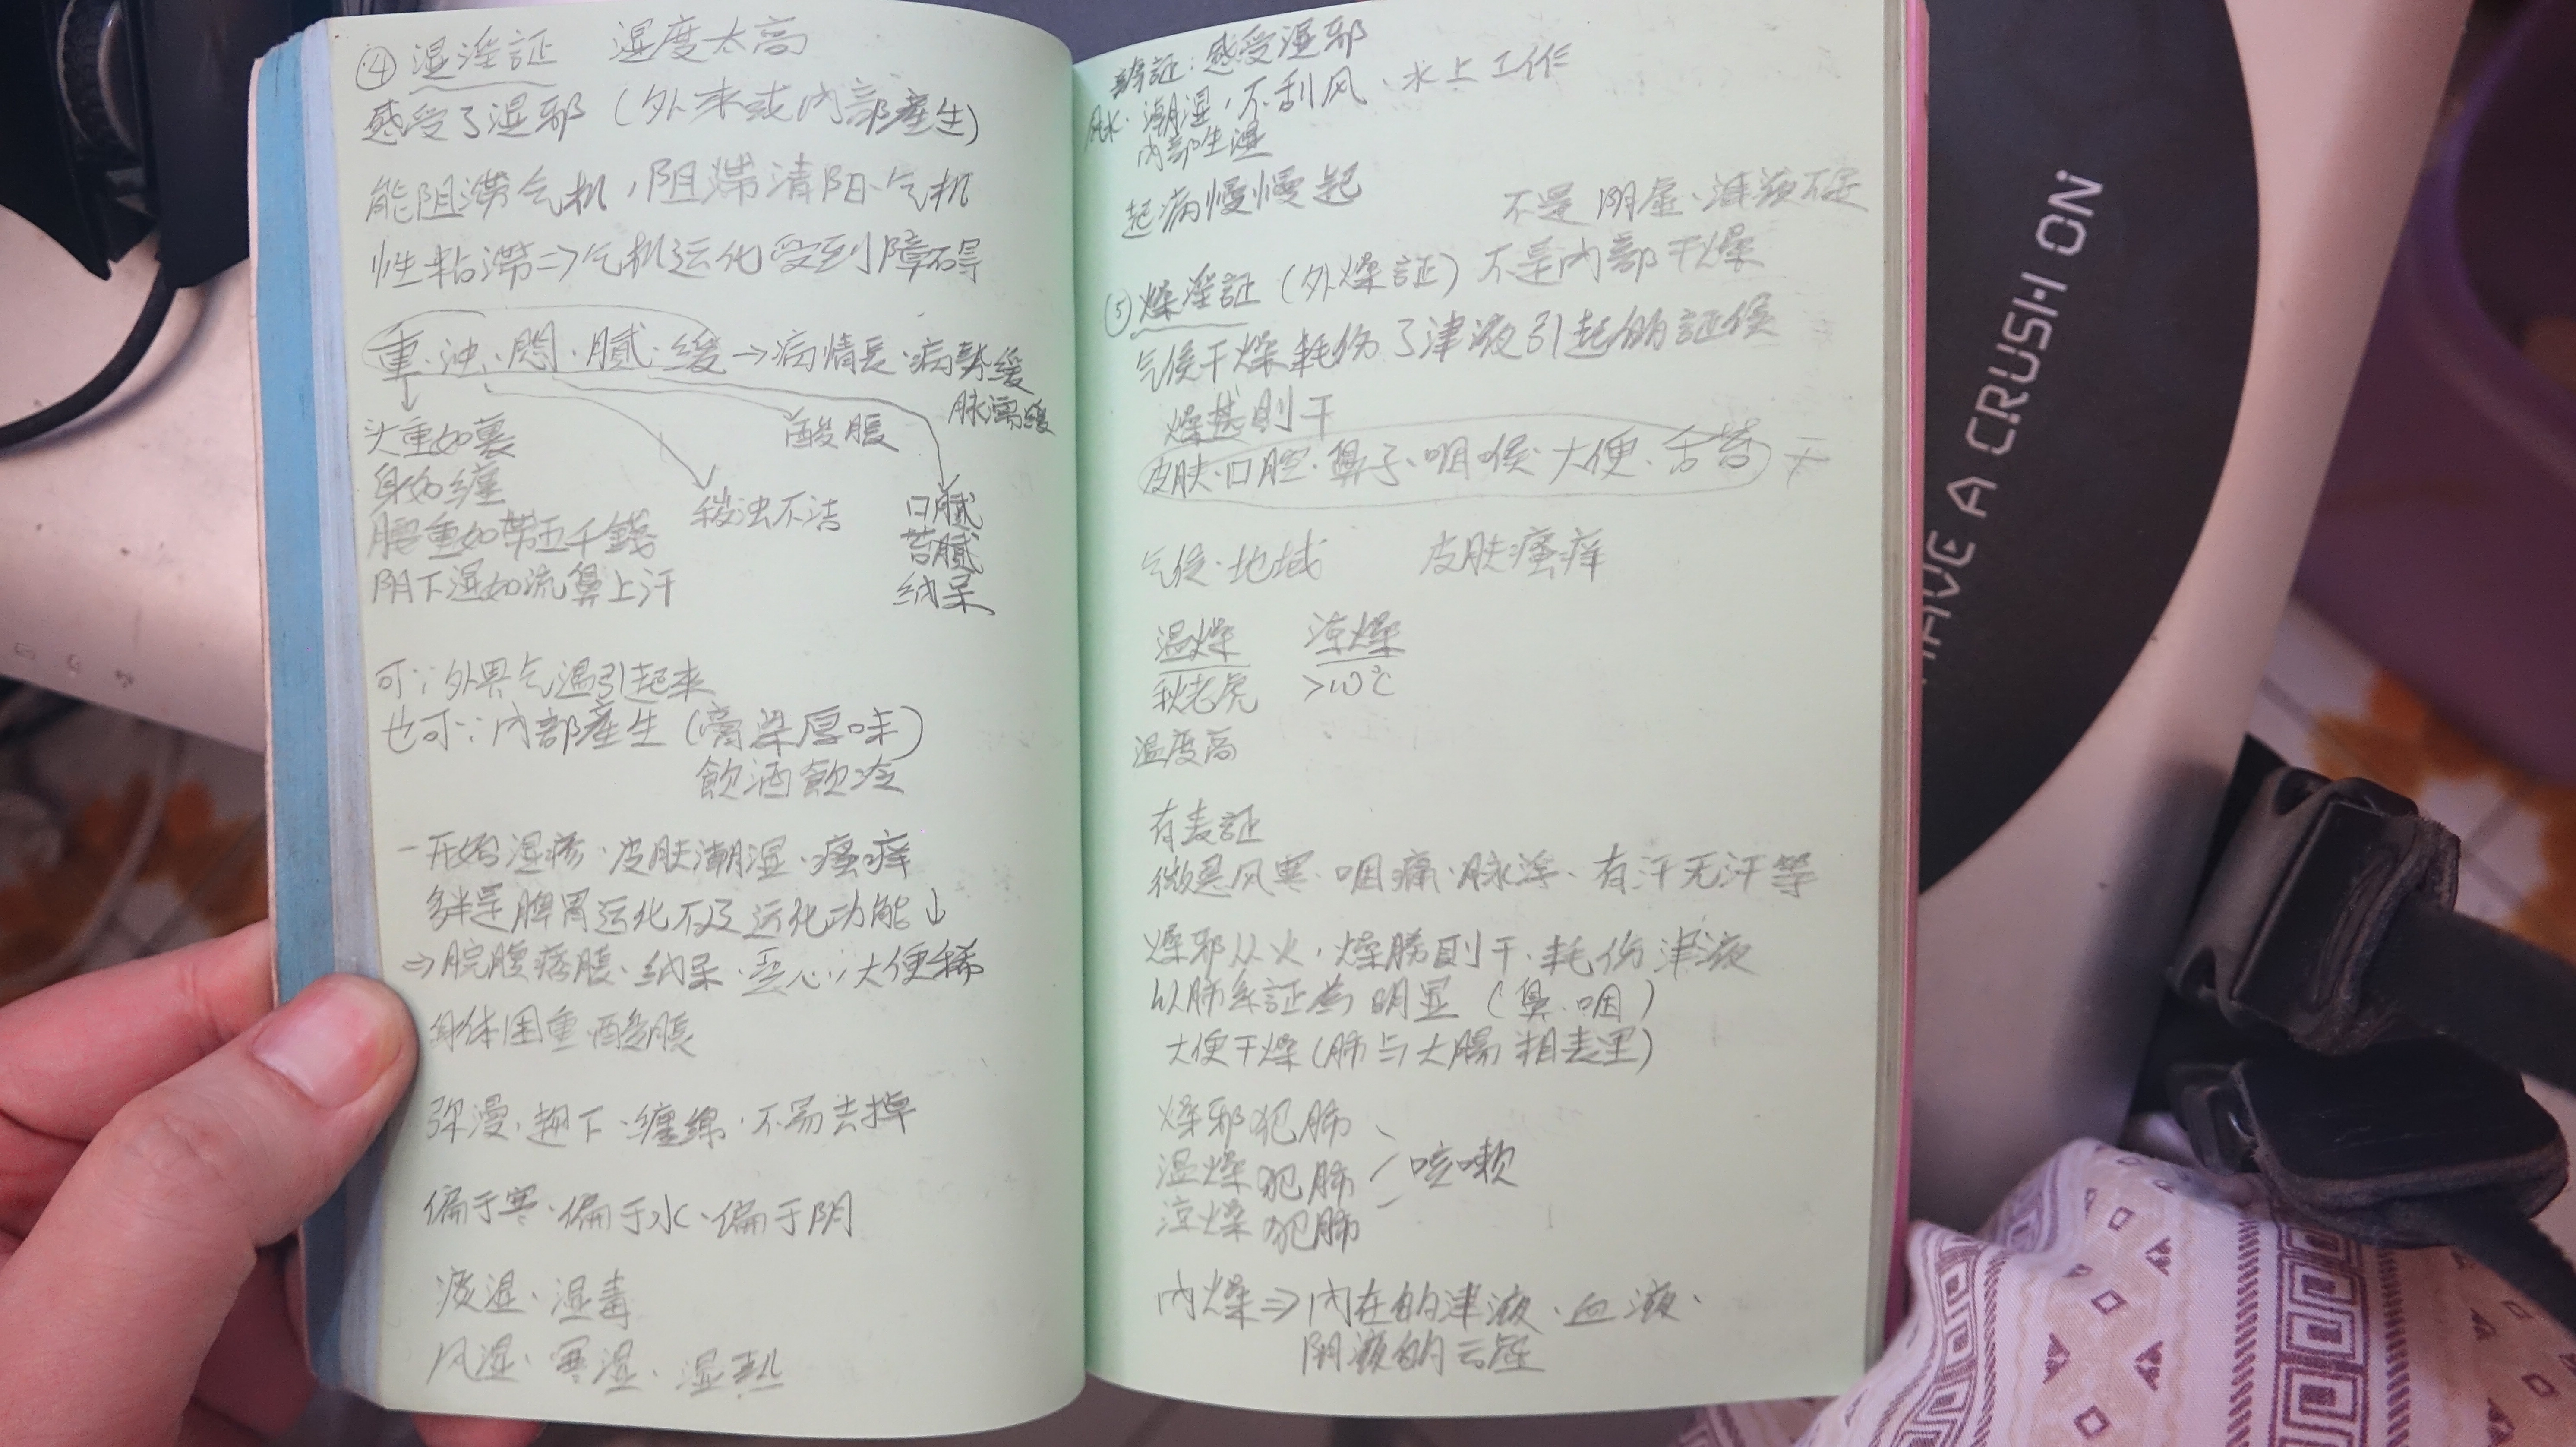 ④ 湿淫証 湿度太高
感受了湿邪（外来或内部產生）
能阻滞气机，阻滞清阳、气机
性粘滞⇒气机运化受到障碍
重、浊、悶、膩、缓→病情長、病势缓
脉濡缓
头重如裹
身如缠
腰重如带五千錢
阴下湿如流鼻上汗
酸脹
秽浊不洁
口膩
苔膩
纳呆
可：外界气湿引起来
也可：内部產生（膏粱厚味）
飲酒飲冷
一开始湿疹、皮肤潮湿、瘙痒
多半是脾胃运化不及 运化功能↓
⇒脘腹痞脹、纳呆、恶心；大便稀
身体困重、酸脹
弥漫、趋下、缠绵、不易去掉
偏于寒、偏于水、偏于阴
痰湿、湿毒
风湿、寒湿、湿热
辨証：感受湿邪
潮湿，不刮风、水上工作
内部生湿
起病慢慢起
不是阴虚、津液不足
⑤ 燥淫証（外燥証）不是内部干燥
气候干燥耗伤了津液引起的証候
燥甚則干
皮肤、口腔、鼻子、咽喉、大便、舌苔 干
气侯、地域 皮肤瘙痒
温燥 凉燥
秋老虎 >10℃
温度高
有表証
微恶风寒、咽痛、脉浮、有汗无汗等
燥邪从火，燥勝則干、耗伤津液
以肺系証為明显（鼻、咽）
大便干燥（肺与大腸相表里）
燥邪犯肺
温燥犯肺 咳嗽
凉燥犯肺
内燥⇒内在的津液、血液、
阴液的亏虚
HAVE A CRUSH ON